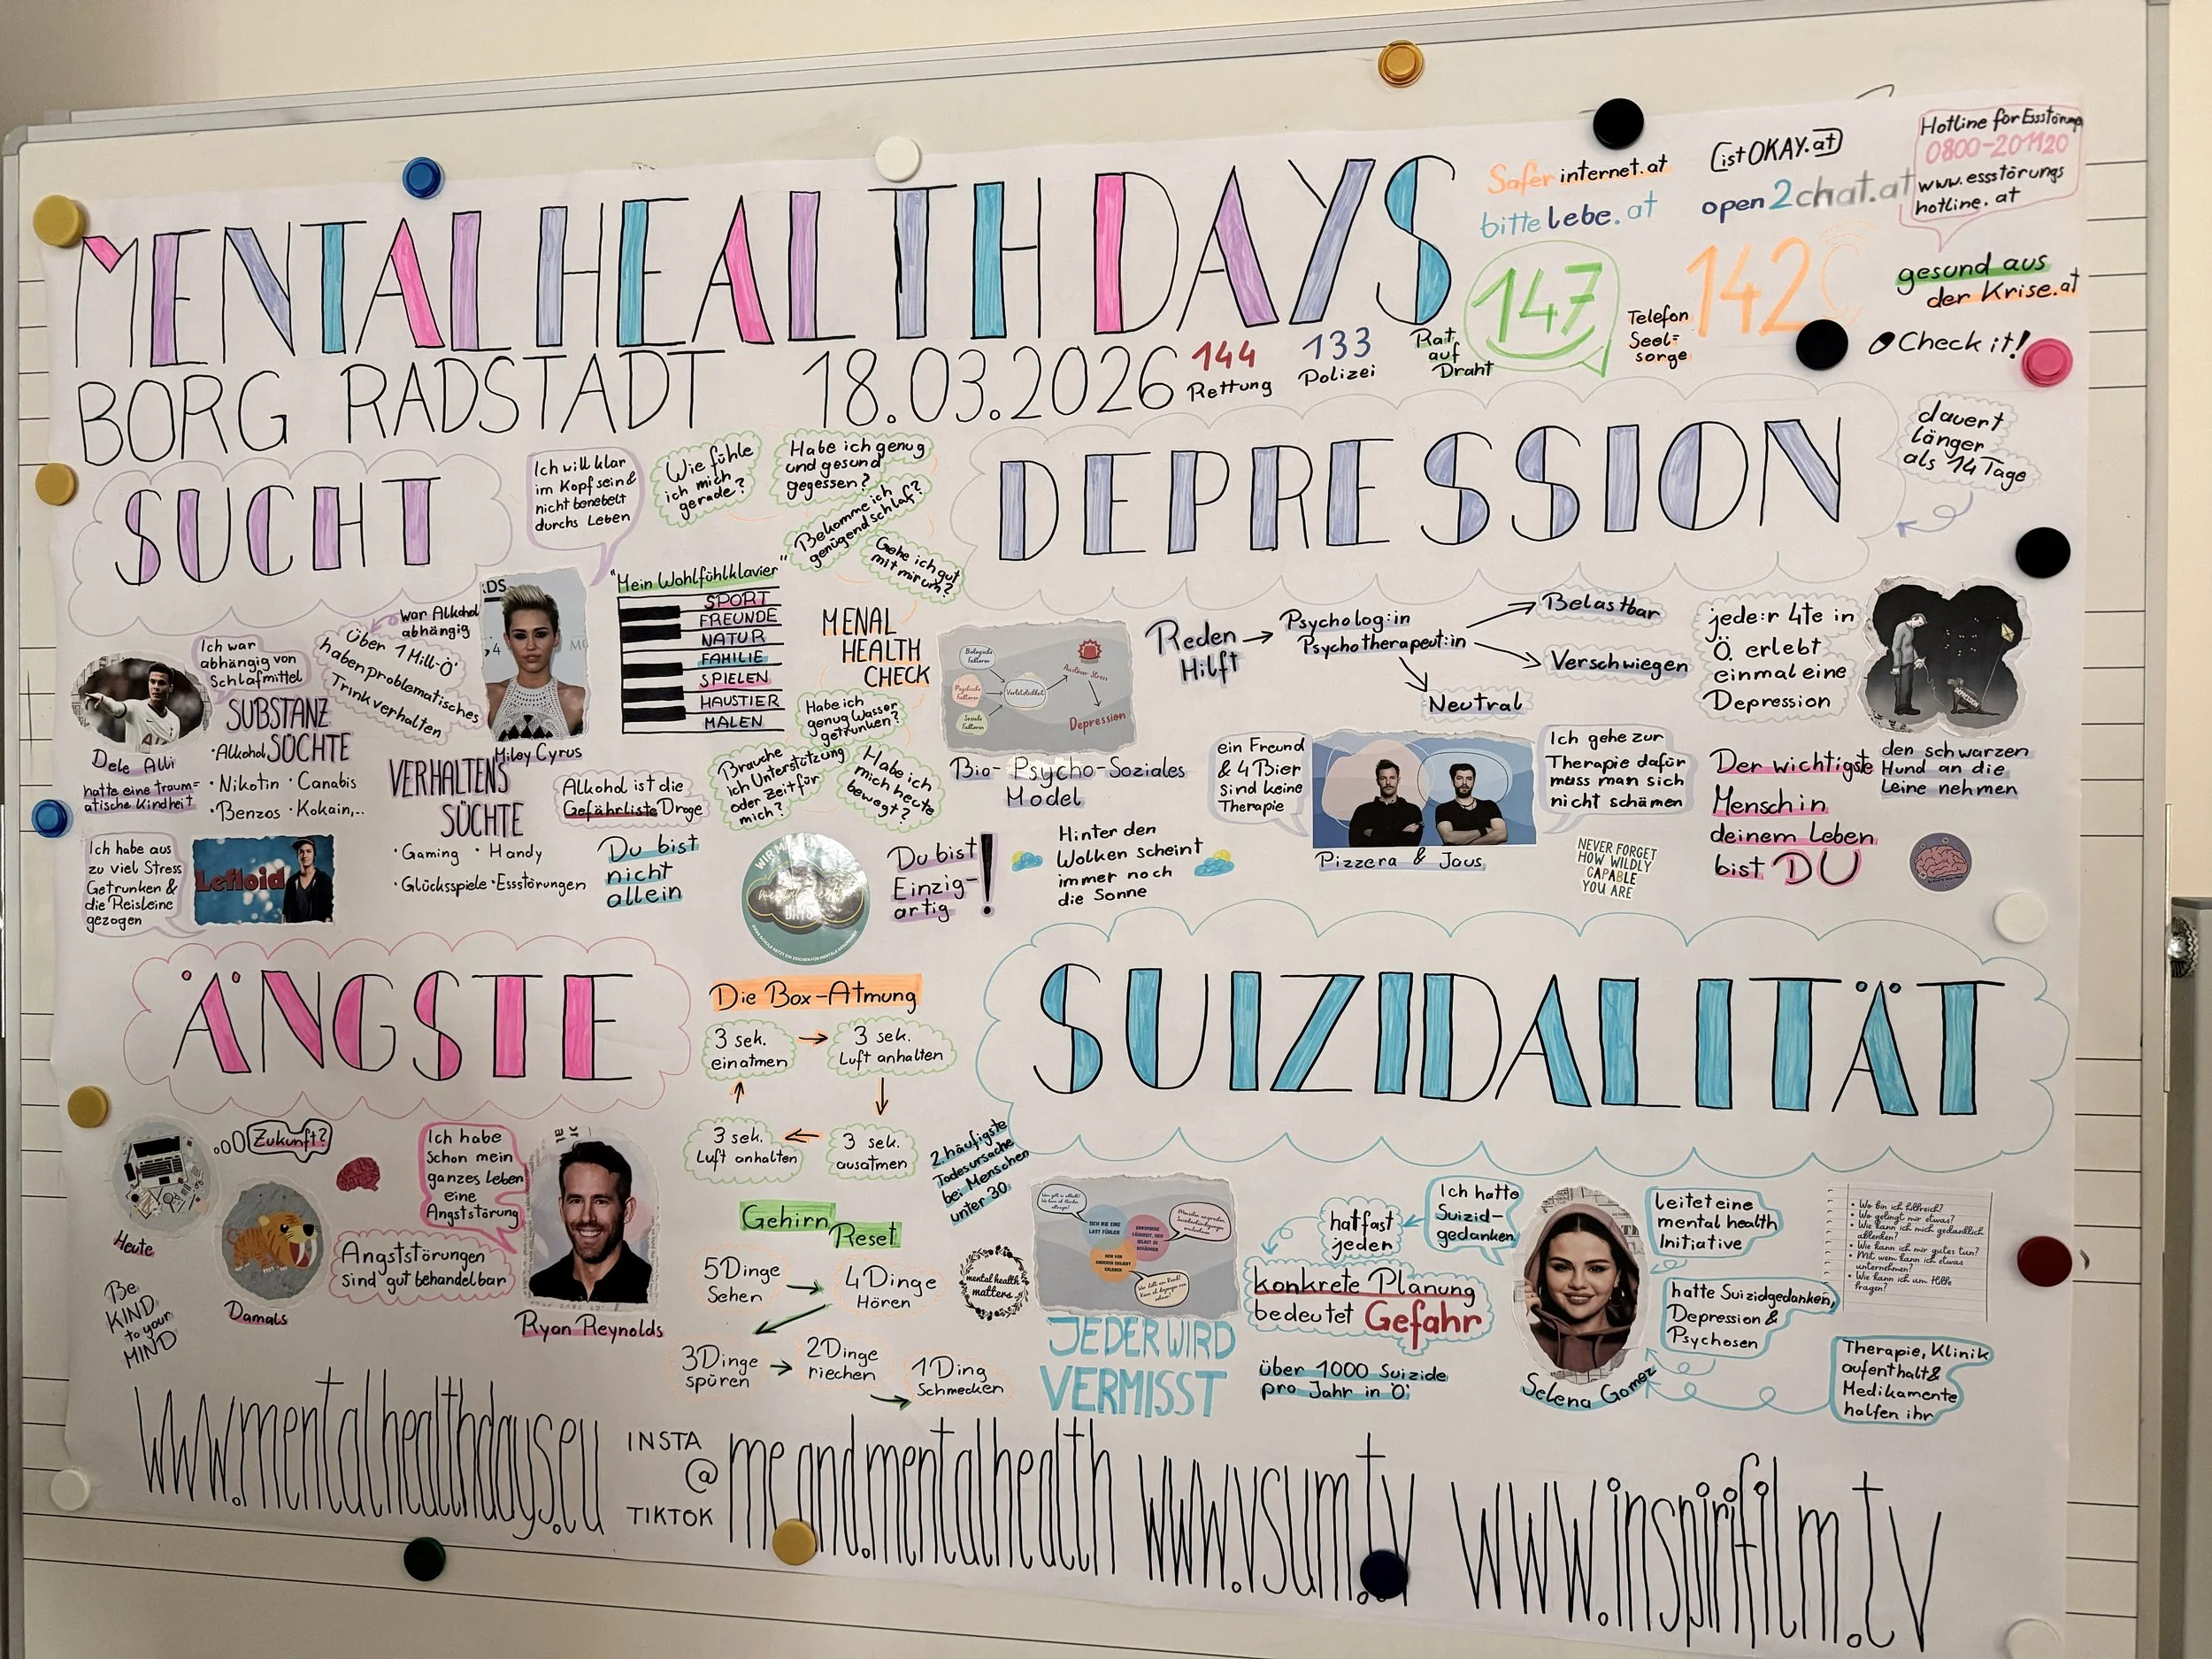 MENTAL HEALTH DAYS
BORG RADSTADT 18.03.2026
144
Rettung
133
Polizei
Rat
auf
Draht
147
Telefon
Seel=
sorge
142
Saferinternet.at
bittelebe.at
istOKAY.at
open2chat.at
Hotline für Essstörung
0800-201120
www.essstörungs
hotline.at
gesund aus
der Krise.at
Check it!
SUCHT
Ich will klar
im Kopf sein &
nicht benebelt
durchs Leben
war Alkohol
abhängig
Über 1 Mill-Ö
haben problematisches
Trinkverhalten
Miley Cyrus
Ich war
abhängig von
Schlafmittel
Dele Alli
hatte eine traum=
atische Kindheit
SUBSTANZ
SÜCHTE
·Alkohol
·Nikotin ·Canabis
·Benzos ·Kokain,..
VERHALTENS
SÜCHTE
·Gaming ·Handy
·Glücksspiele ·Essstörungen
Alkohol ist die
Gefährliste Droge
Ich habe aus
zu viel Stress
Getrunken &
die Reisleine
gezogen
Lefloid
Wie fühle
ich mich
gerade?
Habe ich genug
und gesund
gegessen?
Bekomme ich
genügend schlaf?
Gehe ich gut
mit mir um?
"Mein Wohlfühlklavier"
SPORT
FREUNDE
NATUR
FAMILIE
SPIELEN
HAUSTIER
MALEN
MENAL
HEALTH
CHECK
Habe ich
genug Wasser
getrunken?
Brauche
ich Unterstützung
oder Zeit für
mich?
Habe ich
mich heute
bewegt?
Du bist
nicht
allein
Du bist
Einzig-
artig!
DEPRESSION
dauert
länger
als 14 Tage
Biologische
Faktoren
Psychische
Faktoren
Soziale
Faktoren
Verletzbarkeit
Auslöser Stress
Depression
Bio-Psycho-Soziales
Model
Reden
Hilft
Psycholog:in
Psychotherapeut:in
Belastbar
Verschwiegen
Neutral
jede:r 4te in
Ö. erlebt
einmal eine
Depression
DEPRESSION
den schwarzen
Hund an die
Leine nehmen
ein Freund
& 4 Bier
sind keine
Therapie
Ich gehe zur
Therapie dafür
muss man sich
nicht schämen
Pizzera & Jaus
Der wichtigste
Mensch in
deinem Leben
bist DU
Hinter den
Wolken scheint
immer noch
die Sonne
NEVER FORGET
HOW WILDLY
CAPABLE
YOU ARE
ÄNGSTE
Zukunft?
Heute
Damals
BE
KIND
to your
MIND
Ich habe
Schon mein
ganzes Leben
eine
Angststörung
Angststörungen
sind gut behandelbar
Ryan Reynolds
Die Box-Atmung
3 sek.
einatmen
3 sek.
Luft anhalten
3 sek.
ausatmen
3 sek.
Luft anhalten
Gehirn
Reset
5 Dinge
Sehen
4 Dinge
Hören
3 Dinge
spüren
2 Dinge
riechen
1 Ding
Schmecken
mental health
matters
SUIZIDALITÄT
2. häufigste
Todesursache
bei Menschen
unter 30
SICH WIE EINE
LAST FÜHLEN
JEDER WIRD
VERMISST
hat fast
jeden
Ich hatte
Suizid-
gedanken
konkrete Planung
bedeutet Gefahr
über 1000 Suizide
pro Jahr in Ö
Selena Gomez
leitet eine
mental health
Initiative
hatte Suizidgedanken,
Depression &
Psychosen
Therapie, Klinik
aufenthalt &
Medikamente
halfen ihr
• Wo bin ich hilfreich?
• Wo gelingt mir etwas?
• Wie kann ich mich gedanklich
ablenken?
• Wie kann ich mir gutes tun?
• Mit wem kann ich etwas
unternehmen?
• Wie kann ich um Hilfe
fragen?
www.mentalhealthdays.eu
INSTA
@
TIKTOK
me.and.mentalhealth
www.vsum.tv
www.inspirifilm.tv